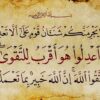 يجرمنكم شنئان قوم على ألا تعد
اعدلوا هو أقرب للتقوى
تقوا الله إن الله خبير بما تعملو